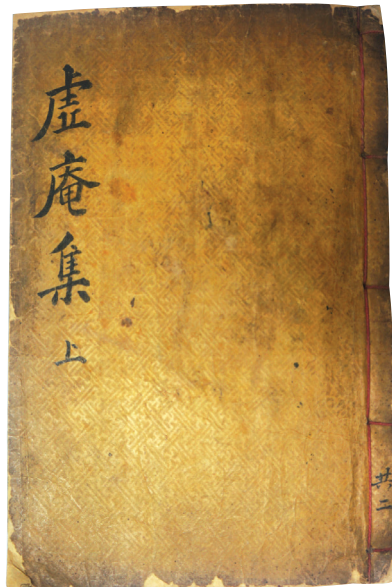 虛庵集 上
共二